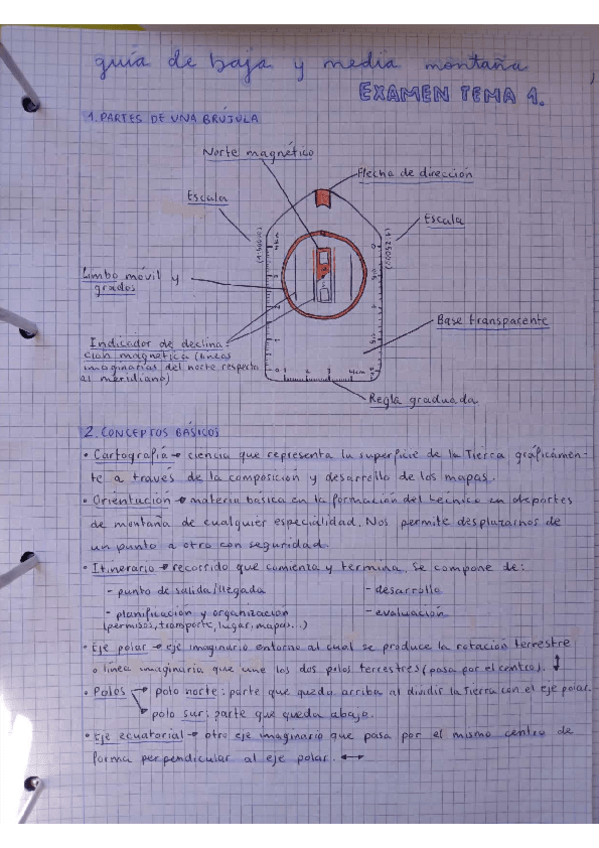 guía de baja y media montaña
EXAMEN TEMA 1.
1. PARTES DE UNA BRÚJULA
Norte magnético
Flecha de dirección
Escala
Escala
(1:50000)
(1:25000)
Limbo móvil y
grados
Base transparente
Indicador de declina-
ción magnética (líneas
imaginarias del norte respecto
al meridiano)
Regla graduada
2. CONCEPTOS BÁSICOS
• Cartografía → ciencia que representa la superficie de la Tierra gráficamen-
te a través de la composición y desarrollo de los mapas.
• Orientación → materia básica en la formación del técnico en deportes
de montaña de cualquier especialidad. Nos permite desplazarnos de
un punto a otro con seguridad.
• Itinerario → recorrido que comienza y termina. Se compone de:
- punto de salida/llegada - desarrollo
- planificación y organización - evaluación
(permisos, transporte, lugar, mapas...)
• Eje polar → eje imaginario entorno al cual se produce la rotación terrestre
o línea imaginaria que une los dos polos terrestres (pasa por el centro). ↕
• Polos → polo norte: parte que queda arriba al dividir la Tierra con el eje polar.
→ polo sur: parte que queda abajo.
• Eje ecuatorial → otro eje imaginario que pasa por el mismo centro de
forma perpendicular al eje polar. ↔